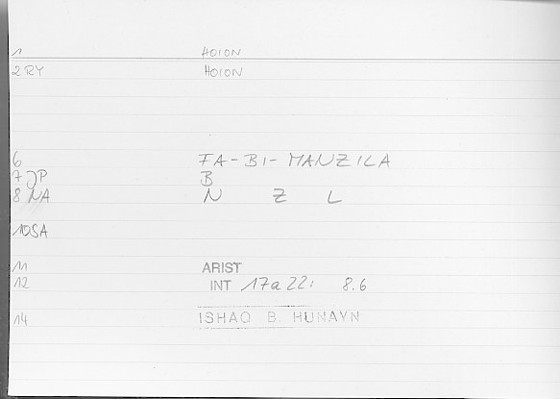 1 HOION
2 RY HOION
6 FA-BI-MANZILA
7 JP B
8 NA N Z L
10 SA
11 ARIST
12 INT 17a22; 8.6
14 ISHAQ B. HUNAYN